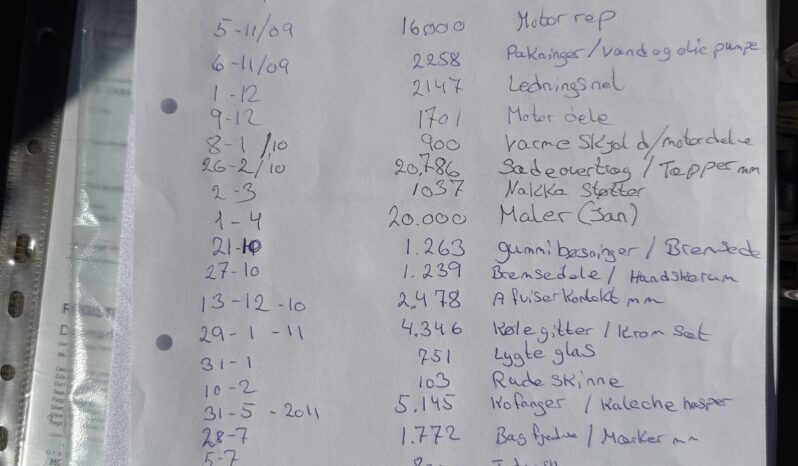 5-11/09 16000 Motor rep
6-11/09 2258 Pakninger/vand og olie pumpe
1-12 2147 Ledningsnet
9-12 1701 Motor dele
8-1/10 900 Varme Skjold/motordele
26-2/10 20,786 Sadeovertrag/Tepper mm
2-3 1037 Nakka Støtter
1-4 20.000 Maler (Jan)
21-10 1.263 gummi bøsninger/Bremsede
27-10 1.239 Bremsedele/Handskerum
13-12-10 2.478 Afviserkontakt mm
29-1-11 4.346 Kølegitter/Krom sæt
31-1 751 Lygte glas
10-2 103 Rude skinne
31-5-2011 5.145 Kofanger/Kaleche hasper
28-7 1.772 Bagfjedre/Mærker mm
5-7